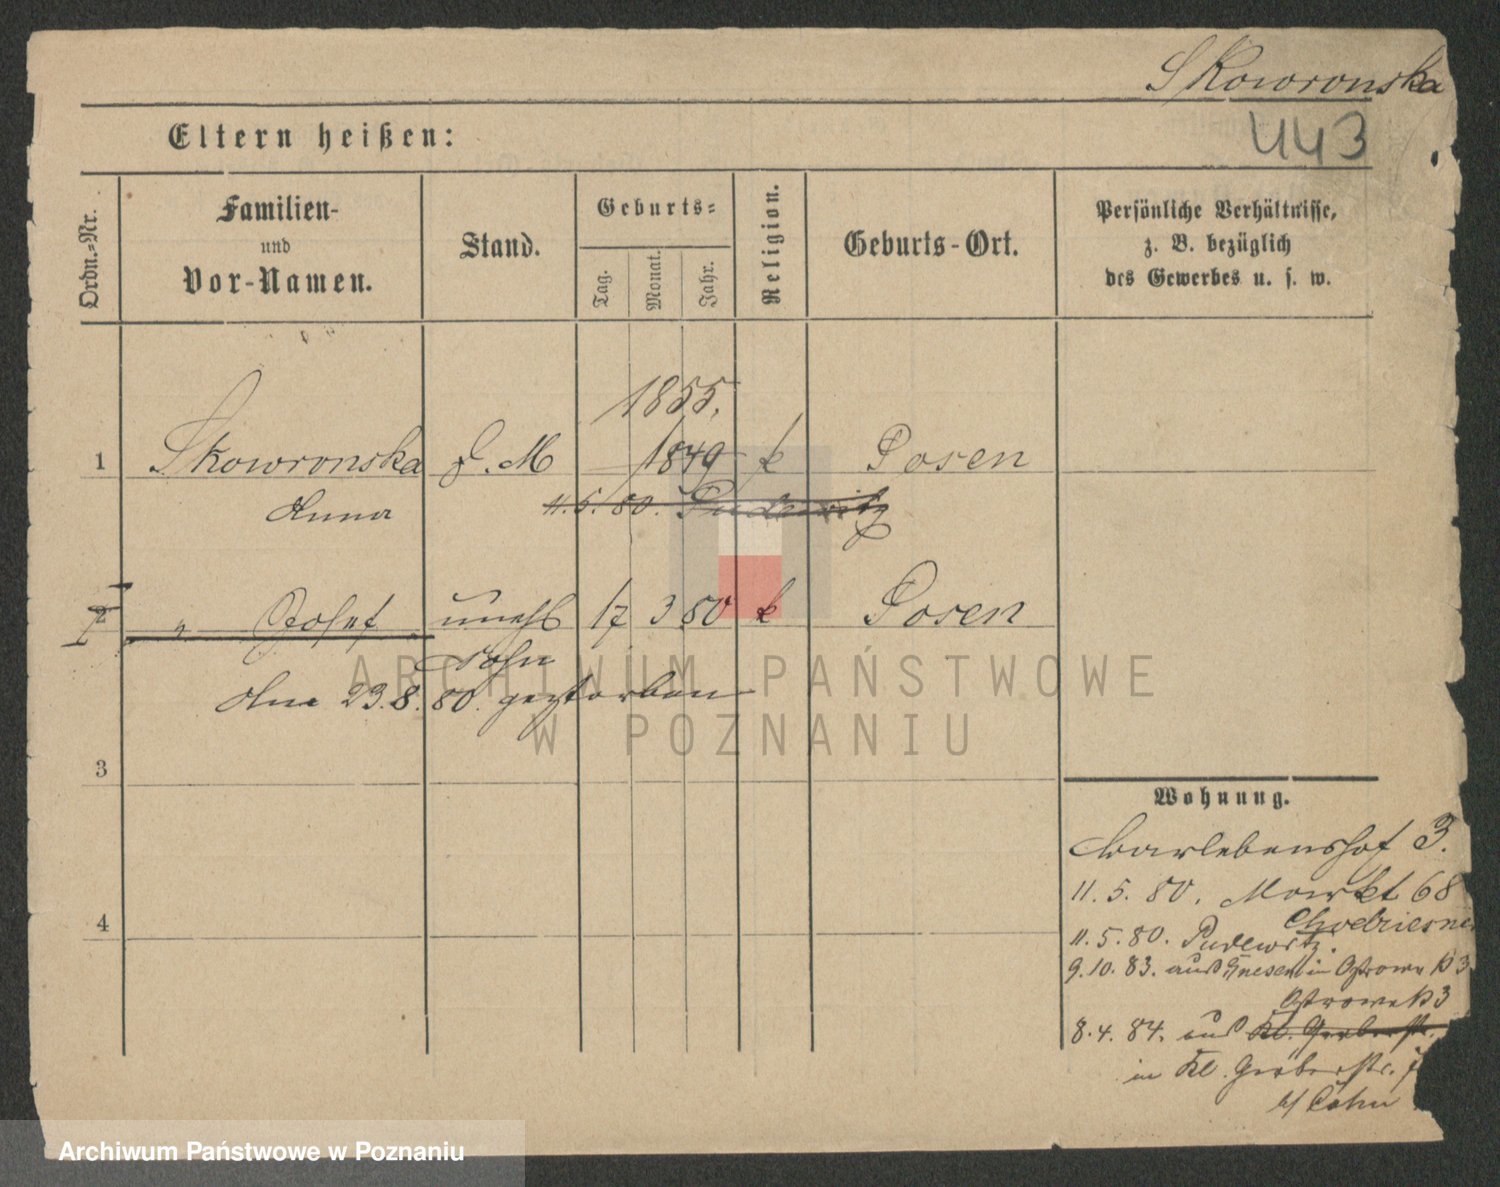 Skowronska
443
Eltern heißen:
Ordn.-Nr.
Familien-
und
Vor-Namen.
Stand.
Geburts-
Tag.
Monat.
Jahr.
Religion.
Geburts-Ort.
Persönliche Verhältnisse,
z. B. bezüglich
des Gewerbes u. s. w.
1855.
1 Skowronska D. M 1849 k Posen
Anna 11.5.80. Pudewitz
2 " Josef unehl 17 3 80 k Posen
Sohn
Am 23.8.80. gestorben
3
4
Wohnung.
3.
11. 5. 80. Markt 68
11. 5. 80. Pudewitz.
9. 10. 83. aus Gnesen in Ostrowek 3
Ostrowek 3
8. 4. 84. aus Kl. Gerberstr.
in Kl. Gerberstr.
b/ Cohn
ARCHIWUM PAŃSTWOWE
W POZNANIU
Archiwum Państwowe w Poznaniu